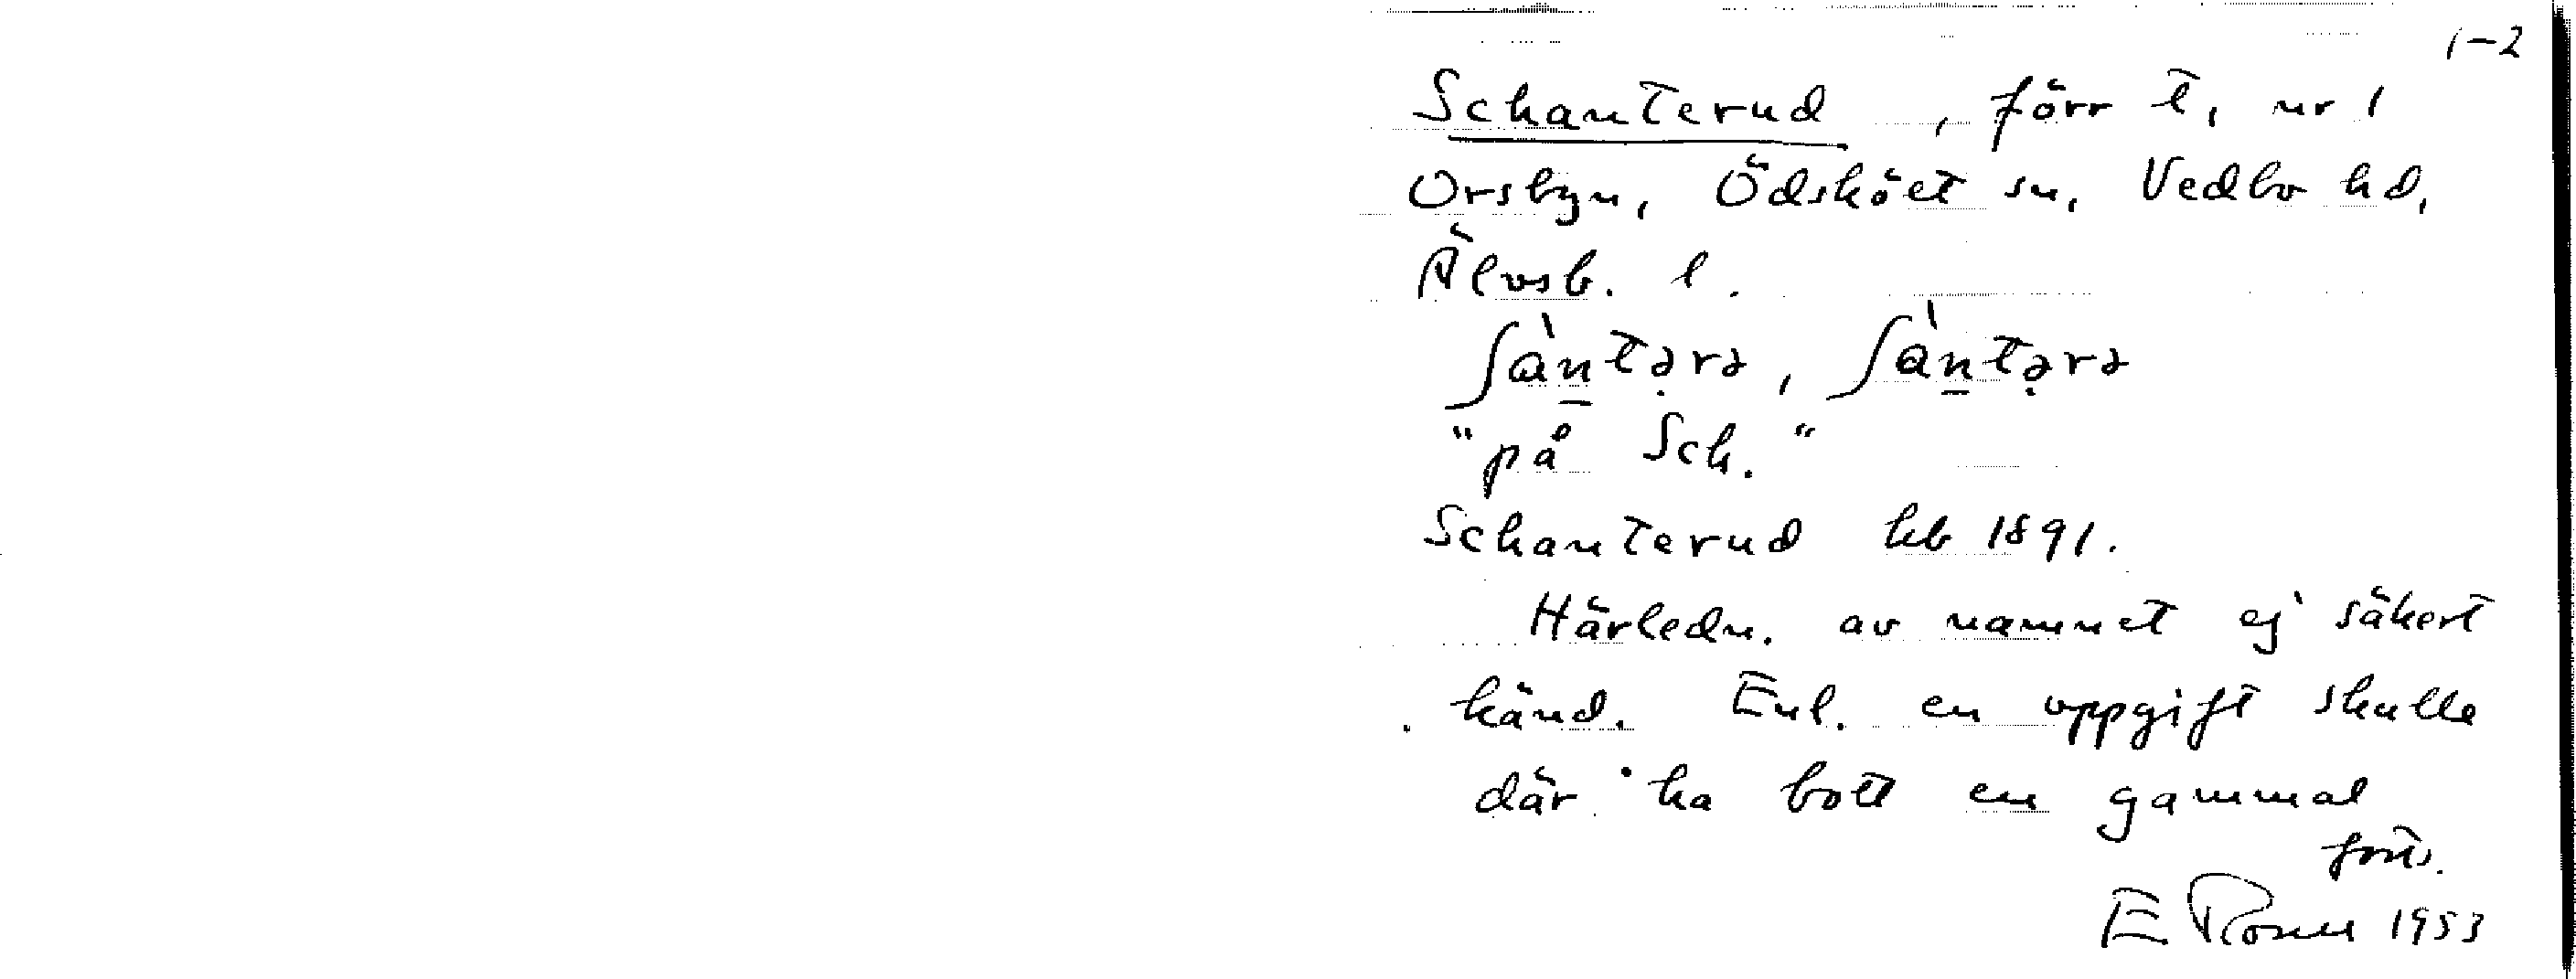 1-2
Schanterud, förr t, nr 1
Orsbyn, Ödsköt sn, Vedbo hd,
Älvsb. l.
ʃàn̠tə̣rə, ʃàn̠tə̣rə
"på Sch."
Schanterud kb 1891.
Härledn. av namnet ej säkert
känd. Enl. en uppgift skulle
där ha bott en gammal
forts.
E 1953